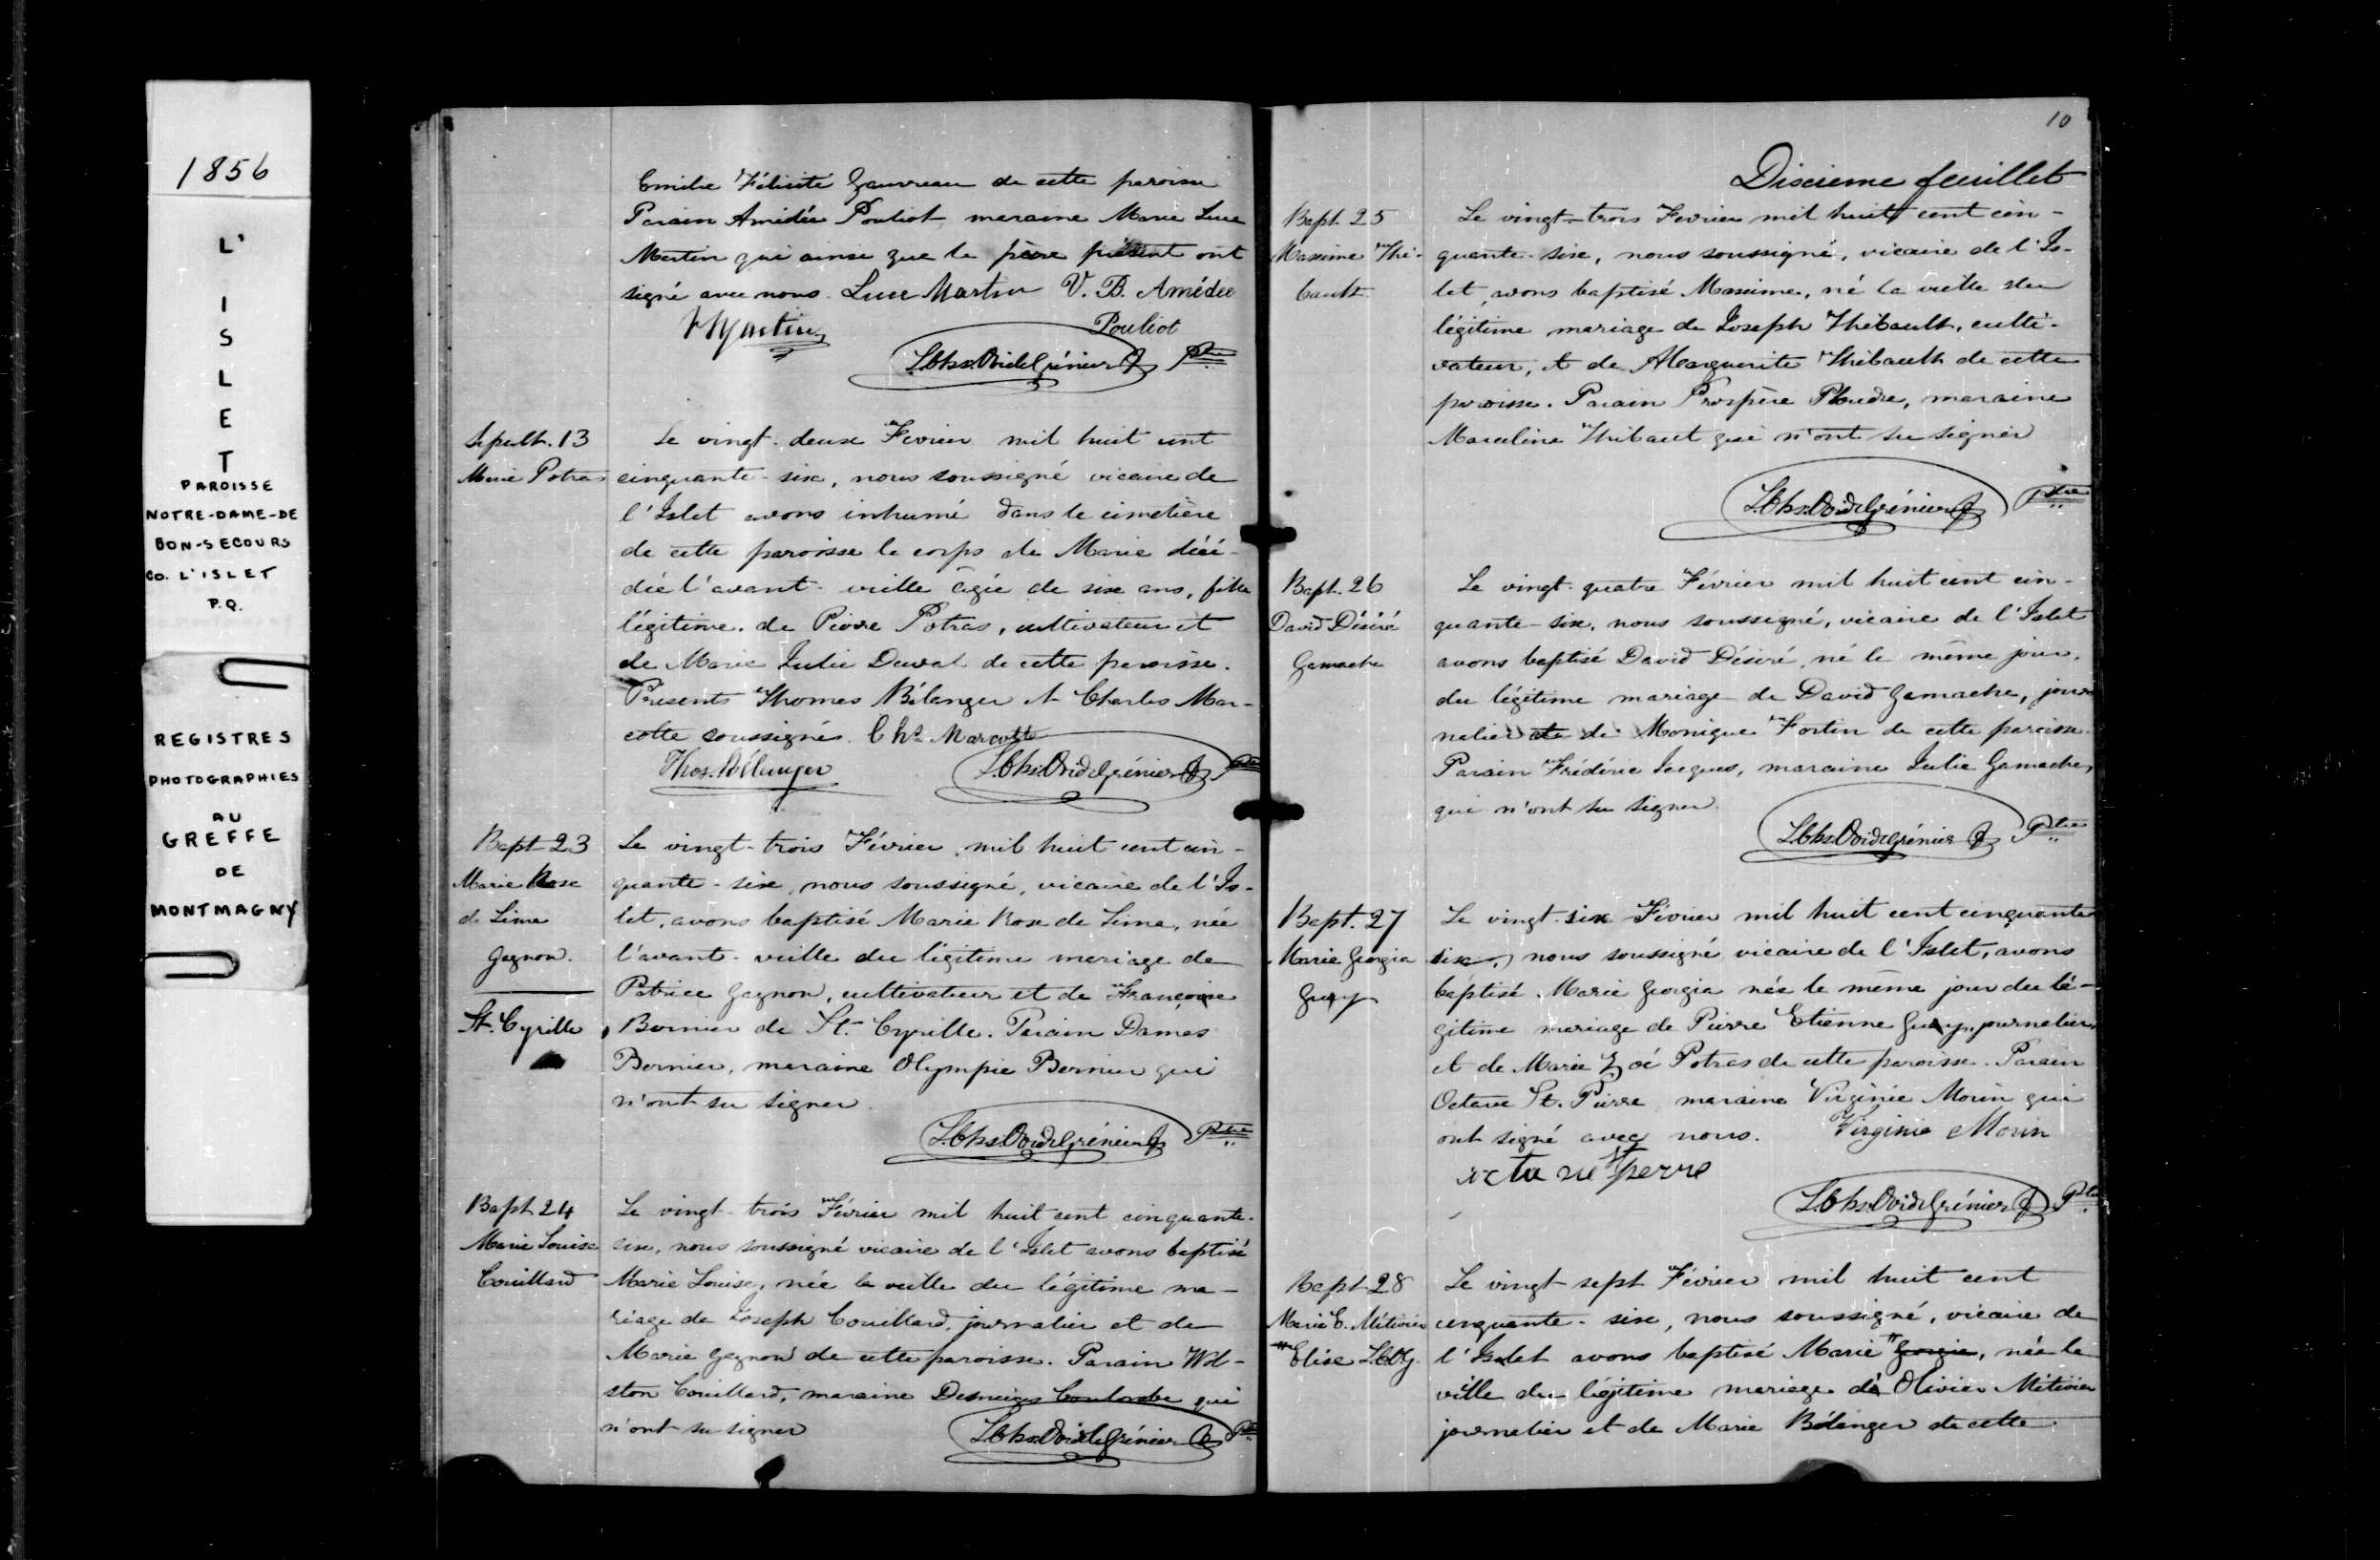 1856
L'
I
S
L
E
T
PAROISSE
NOTRE-DAME-DE
BON-SECOURS
CO. L'ISLET
P.Q.
REGISTRES
PHOTOGRAPHIES
AU
GREFFE
DE
MONTMAGNY
Emilie Félicité Gauvreau de cette paroisse
Parain Amédée Pouliot, maraine Marie Luce
Martin qui ainsi que le père présent ont
signé avec nous. Luce Martin V. B. Amédée
Pouliot
L.Chs.OvideGrénier Ptre
Sepult. 13
Marie Potras
Le vingt-deux Fevrier mil huit cent
cinquante-six, nous soussigné vicaire de
l'Islet avons inhumé dans le cimetière
de cette paroisse le corps de Marie décé-
dée l'avant-veille âgée de six ans, fille
légitime de Pierre Potras, cultivateur et
de Marie Julie Duval de cette paroisse.
Présents Thomas Bélanger et Charles Mar-
cotte soussignés. Chs Marcotte
Thos. Bélanger L.Chs.OvideGrénier Ptre
Bapt 23
Marie Rose
de Lima
Gagnon.
St. Cyrille
Le vingt-trois Février mil huit cent cin-
quante-six, nous soussigné, vicaire de l'Is-
let, avons baptisé Marie Rose de Lima, née
l'avant-veille du légitime mariage de
Patrice Gagnon, cultivateur et de Françoise
Bernier de St. Cyrille. Parain Damas
Bernier, maraine Olympie Bernier qui
n'ont su signer
L.Chs.OvideGrénier Ptre
Bapt 24
Marie Louise
Couillard
Le vingt-trois Février mil huit cent cinquante-
six, nous soussigné vicaire de l'Islet avons baptisé
Marie Louise, née la veille du légitime ma-
riage de Joseph Couillard, journalier et de
Marie Gagnon de cette paroisse. Parain Wol-
ston Couillard, maraine Desneiges Coulombe qui
n'ont su signer L.Chs.OvideGrénier Ptre
10
Dixieme feuillet
Bapt. 25
Maxime Thi-
bault
Le vingt-trois Fevrier mil huit cent cin-
quante-six, nous soussigné, vicaire de l'Is-
let, avons baptisé Maxime, né la veille du
légitime mariage de Joseph Thibault, culti-
vateur, et de Marguerite Thibault de cette
paroisse. Parain Prospère Plourdre, maraine
Marceline Thibaut qui n'ont su signer
L.Chs.OvideGrénier Ptre
Bapt. 26
David Désiré
Gamache
Le vingt-quatre Février mil huit cent cin-
quante-six, nous soussigné, vicaire de l'Islet
avons baptisé David Désiré, né le même jour,
du légitime mariage de David Gamache, jour
nalier et de Monique Fortin de cette paroisse.
Parain Frédéric Jacques, maraine Julie Gamache,
qui n'ont su signer.
L.Chs.OvideGrénier Ptre
Bapt. 27
Marie Georgia
Guay
Le vingt-six Février mil huit cent cinquante
six, nous soussigné vicaire de l'Islet, avons
baptisé Marie Georgia née le même jour du lé-
gitime mariage de Pierre Etienne Guay, journalier,
et de Marie Zoé Potras de cette paroisse. Parain
Octave St. Pierre, maraine Virginie Morin qui
ont signé avec nous. Virginie Morin
L.Chs.OvideGrénier Ptre
Bapt 28
Marie E. Métivier
Elise L.C.O.G.
Le vingt-sept Février mil huit cent
cinquante-six, nous soussigné, vicaire de
l'Islet avons baptisé Marie Georgia, née la
veille du légitime mariage de Olivier Métivier
journalier et de Marie Bélanger de cette